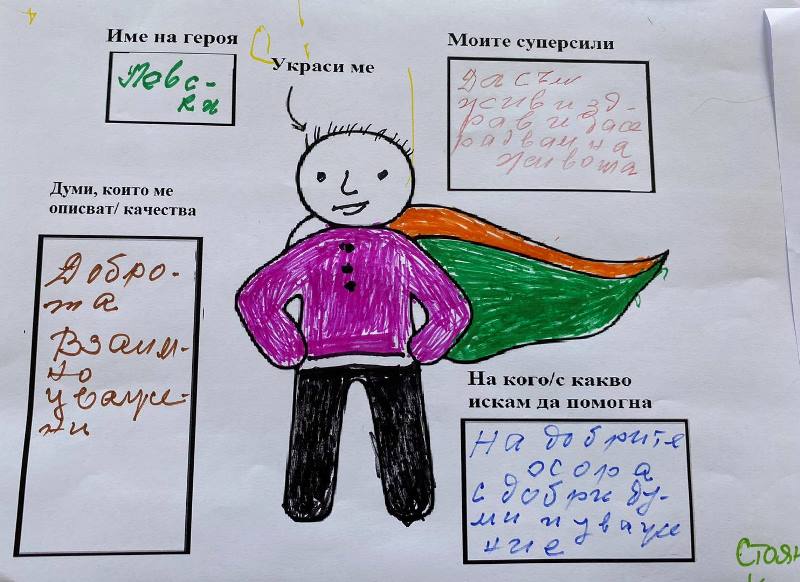 Име на героя
Левс-
ки
Украси ме
Моите суперсили
Да съм
жив и зд-
рав и да се
радвам на
живота
Думи, които ме
описват/ качества
Добро-
та
Взаим-
но
уваже-
ни
На кого/с какво
искам да помогна
На добрите
осора
с добри ду-
ми и уваже
ние
Стоян